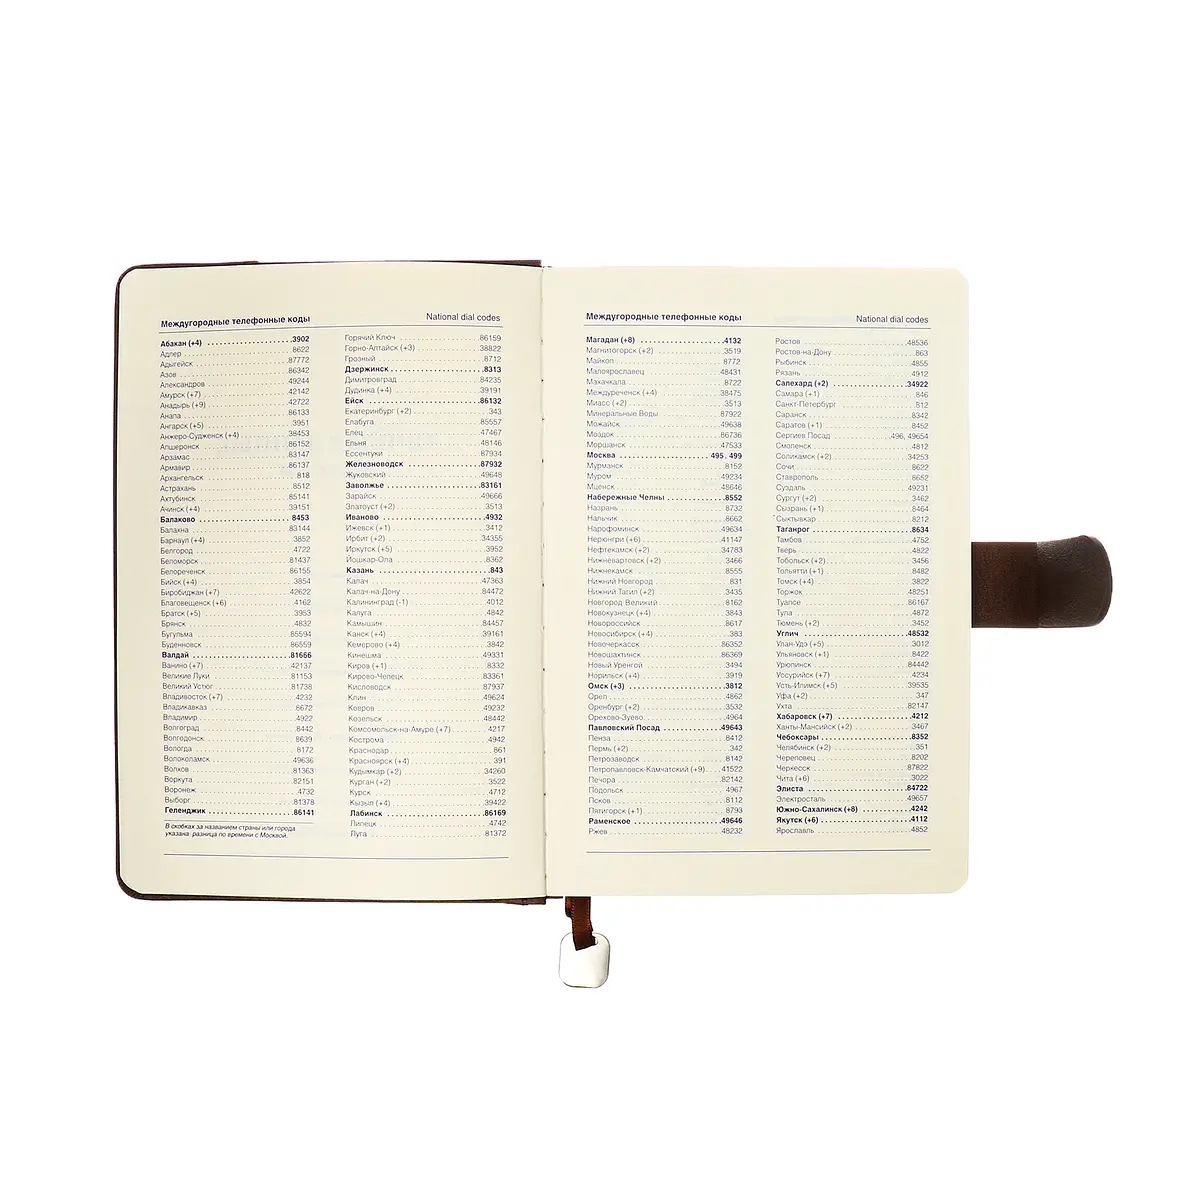 Междугородные телефонные коды National dial codes
Абакан (+4) 3902
Адлер 8622
Адыгейск 87772
Азов 86342
Александров 49244
Амурск (+7) 42142
Анадырь (+9) 42722
Анапа 86133
Ангарск (+5) 3951
Анжеро-Судженск (+4) 38453
Апшеронск 86152
Арзамас 83147
Армавир 86137
Архангельск 818
Астрахань 8512
Ахтубинск 85141
Ачинск (+4) 39151
Балаково 8453
Балахна 83144
Барнаул (+4) 3852
Белгород 4722
Беломорск 81437
Белореченск 86155
Бийск (+4) 3854
Биробиджан (+7) 42622
Благовещенск (+6) 4162
Братск (+5) 3953
Брянск 4832
Бугульма 85594
Буденновск 86559
Валдай 81666
Ванино (+7) 42137
Великие Луки 81153
Великий Устюг 81738
Владивосток (+7) 4232
Владикавказ 8672
Владимир 4922
Волгоград 8442
Волгодонск 8639
Вологда 8172
Волоколамск 49636
Волхов 81363
Воркута 82151
Воронеж 4732
Выборг 81378
Геленджик 86141
В скобках за названием страны или города
указана разница по времени с Москвой.
Горячий Ключ 86159
Горно-Алтайск (+3) 38822
Грозный 8712
Дзержинск 8313
Димитровград 84235
Дудинка (+4) 39191
Ейск 86132
Екатеринбург (+2) 343
Елабуга 85557
Елец 47467
Ельня 48146
Ессентуки 87934
Железноводск 87932
Жуковский 49648
Заволжье 83161
Зарайск 49666
Златоуст (+2) 3513
Иваново 4932
Ижевск (+1) 3412
Ирбит (+2) 34355
Иркутск (+5) 3952
Йошкар-Ола 8362
Казань 843
Калач 47363
Калач-на-Дону 84472
Калининград (-1) 4012
Калуга 4842
Камышин 84457
Канск (+4) 39161
Кемерово (+4) 3842
Кинешма 49331
Киров (+1) 8332
Кирово-Чепецк 83361
Кисловодск 87937
Клин 49624
Ковров 49232
Козельск 48442
Комсомольск-на-Амуре (+7) 4217
Кострома 4942
Краснодар 861
Красноярск (+4) 391
Кудымкар (+2) 34260
Курган (+2) 3522
Курск 4712
Кызыл (+4) 39422
Лабинск 86169
Липецк 4742
Луга 81372
Междугородные телефонные коды National dial codes
Магадан (+8) 4132
Магнитогорск (+2) 3519
Майкоп 8772
Малоярославец 48431
Махачкала 8722
Междуреченск (+4) 38475
Миасс (+2) 3513
Минеральные Воды 87922
Можайск 49638
Моздок 86736
Моршанск 47533
Москва 495, 499
Мурманск 8152
Муром 49234
Мценск 48646
Набережные Челны 8552
Назрань 8732
Нальчик 8662
Нарофоминск 49634
Нерюнгри (+6) 41147
Нефтекамск (+2) 34783
Нижневартовск (+2) 3466
Нижнекамск 8555
Нижний Новгород 831
Нижний Тагил (+2) 3435
Новгород Великий 8162
Новокузнецк (+4) 3843
Новороссийск 8617
Новосибирск (+4) 383
Новочеркасск 86352
Новошахтинск 86369
Новый Уренгой 3494
Норильск (+4) 3919
Омск (+3) 3812
Орел 4862
Оренбург (+2) 3532
Орехово-Зуево 4964
Павловский Посад 49643
Пенза 8412
Пермь (+2) 342
Петрозаводск 8142
Петропавловск-Камчатский (+9) 41522
Печора 82142
Подольск 4967
Псков 8112
Пятигорск (+1) 8793
Раменское 49646
Ржев 48232
Ростов 48536
Ростов-на-Дону 863
Рыбинск 4855
Рязань 4912
Салехард (+2) 34922
Самара (+1) 846
Санкт-Петербург 812
Саранск 8342
Саратов (+1) 8452
Сергиев Посад 496, 49654
Смоленск 4812
Соликамск (+2) 34253
Сочи 8622
Ставрополь 8652
Суздаль 49231
Сургут (+2) 3462
Сызрань (+1) 8464
Сыктывкар 8212
Таганрог 8634
Тамбов 4752
Тверь 4822
Тобольск (+2) 3456
Тольятти (+1) 8482
Томск (+4) 3822
Торжок 48251
Туапсе 86167
Тула 4872
Тюмень (+2) 3452
Углич 48532
Улан-Удэ (+5) 3012
Ульяновск (+1) 8422
Урюпинск 84442
Уссурийск (+7) 4234
Усть-Илимск (+5) 39535
Уфа (+2) 347
Ухта 82147
Хабаровск (+7) 4212
Ханты-Мансийск (+2) 3467
Чебоксары 8352
Челябинск (+2) 351
Череповец 8202
Черкесск 87822
Чита (+6) 3022
Элиста 84722
Электросталь 49657
Южно-Сахалинск (+8) 4242
Якутск (+6) 4112
Ярославль 4852